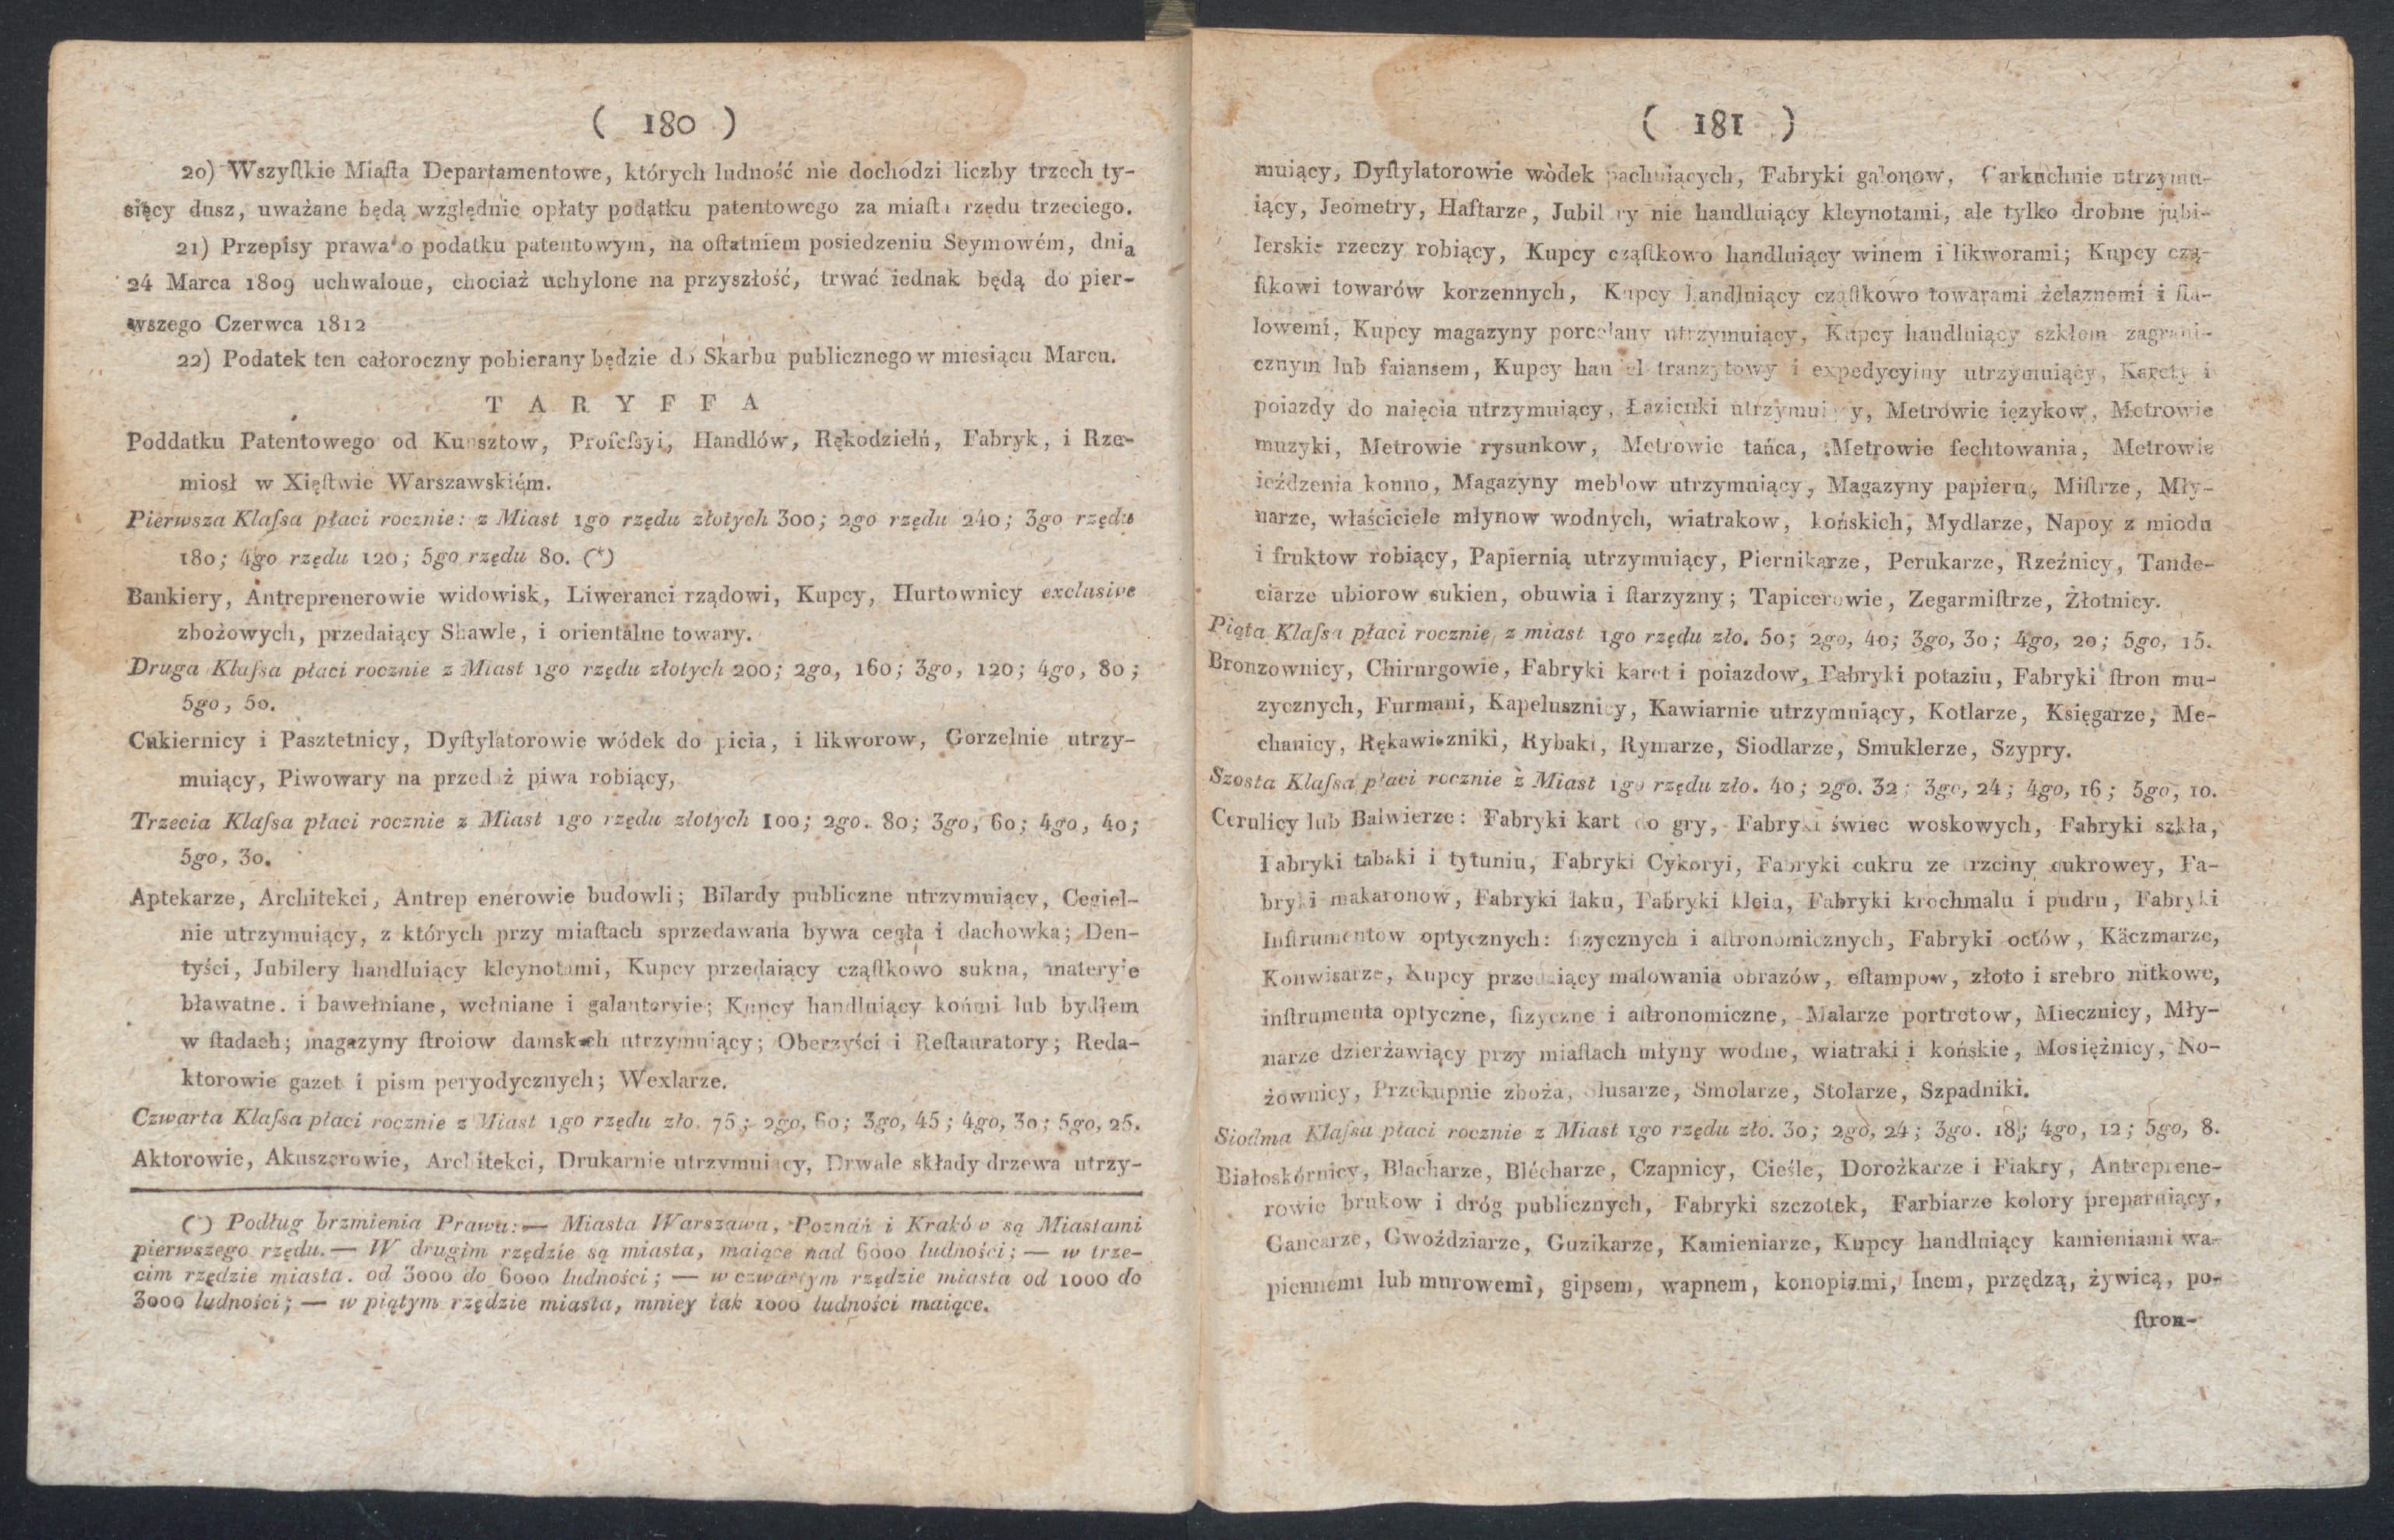 ( 180 )
20) Wszyſtkie Miaſta Departamentowe, których ludność nie dochodzi liczby trzech ty-
sięcy dusz, uważane będą względnie opłaty podątku patentowego za miaſta rzędu trzeciego.
21) Przepisy prawa o podatku patentowym, na oſtatniem posiedzeniu Seymowém, dnia
24 Marca 1809 uchwalone, chociaż uchylone na przyszłość, trwać iednak będą do pier-
wszego Czerwca 1812
22) Podatek ten całoroczny pobierany będzie do Skarbu publicznego w miesiącu Marcu.
TARYFFA
Poddatku Patentowego od Kunsztow, Profeſsyi, Handlów, Rękodziełń, Fabryk, i Rze-
miosł w Xięſtwie Warszawskiém.
Pierwsza Klaſsa płaci rocznie: z Miast 1go rzędu złotych 300; 2go rzędu 240; 3go rzędu
180; 4go rzędu 120; 5go rzędu 80. (*)
Bankiery, Antreprenerowie widowisk, Liweranci rządowi, Kupcy, Hurtownicy exclusive
zbożowych, przedaiący Shawle, i orientalne towary.
Druga Klaſsa płaci rocznie z Miast 1go rzędu złotych 200; 2go, 160; 3go, 120; 4go, 80;
5go, 50.
Cukiernicy i Pasztetnicy, Dyſtylatorowie wódek do picia, i likworow, Gorzelnie utrzy-
muiący, Piwowary na przedaż piwa robiący,
Trzecia Klaſsa płaci rocznie z Miast 1go rzędu złotych 100; 2go. 80; 3go, 60; 4go, 40;
5go, 30.
Aptekarze, Architekci, Antrep enerowie budowli; Bilardy publiczne utrzymuiący, Cegiel-
nie utrzymuiący, z których przy miaſtach sprzedawana bywa cegła i dachowka; Den-
tyści, Jubilery handluiący kleynotami, Kupcy przedaiący cząſtkowo sukna, materyie
bławatne. i bawełniane, wełniane i galanteryie; Kupcy handluiący końmi lub bydłem
w ſtadach; magazyny ſtroiow damskich utrzymuiący; Oberzyści i Reſtauratory; Reda-
ktorowie gazet i pism peryodycznych; Wexlarze.
Czwarta Klaſsa płaci rocznie z Miast 1go rzędu zło. 75; 2go, 60; 3go, 45; 4go, 30; 5go, 25.
Aktorowie, Akuszerowie, Architekci, Drukarnie utrzymuiący, Drwale składy drzewa utrzy-
(*) Podług brzmienia Prawa: — Miasta Warszawa, Poznań i Kraków są Miastami
pierwszego rzędu. — W drugim rzędzie są miasta, maiące nad 6000 ludności; — w trze-
cim rzędzie miasta. od 3000 do 6000 ludności; — w czwartym rzędzie miasta od 1000 do
3000 ludności; — w piątym rzędzie miasta, mniey iak 1000 ludności maiące.
( 181 )
muiący, Dyſtylatorowie wòdek pachniących, Fabryki galonow, Garkuchnie utrzymu-
iący, Jeometry, Haftarze, Jubilery nie handluiący kleynotami, ale tylko drobne jubi-
lerskie rzeczy robiący, Kupcy cząſtkowo handluiący winem i likworami; Kupcy czą-
ſtkowi towarów korzennych, Kupcy handluiący cząſtkowo towarami żelaznemi i ſta-
lowemi, Kupcy magazyny porcelany utrzymuiący, Kupcy handluiący szkłem zagrani-
cznym lub faiansem, Kupcy handel tranzytowy i expedycyiny utrzymuiący, Karety i
poiazdy do naięcia utrzymuiący, Łazienki utrzymuiący, Metrowie ięzykow, Metrowie
muzyki, Metrowie rysunkow, Metrowie tańca, Metrowie fechtowania, Metrowie
ieździenia konno, Magazyny meblow utrzymuiący, Magazyny papieru, Miſtrze, Mły-
narze, właściciele młynow wodnych, wiatrakow, końskich, Mydlarze, Napoy z miodu
i fruktow robiący, Papiernią utrzymuiący, Piernikarze, Perukarze, Rzeźnicy, Tande-
ciarze ubiorow sukien, obuwia i ſtarzyzny; Tapicerowie, Zegarmiſtrze, Złotnicy.
Piąta Klaſsa płaci rocznie z miast 1go rzędu zło. 50; 2go, 40; 3go, 30; 4go, 20; 5go, 15.
Bronzownicy, Chirurgowie, Fabryki karet i poiazdow, Fabryki potaziu, Fabryki ſtron mu-
zycznych, Furmani, Kapelusznicy, Kawiarnie utrzymuiący, Kotlarze, Księgarze, Me-
chanicy, Rękawiczniki, Rybaki, Rymarze, Siodlarze, Smuklerze, Szypry.
Szosta Klaſsa płaci rocznie z Miast 1go rzędu zło. 40; 2go. 32; 3go, 24; 4go, 16; 5go, 10.
Cerulicy lub Balwierze: Fabryki kart do gry, Fabryki świec woskowych, Fabryki szkła,
Fabryki tabaki i tytuniu, Fabryki Cykoryi, Fabryki cukru ze trzciny cukrowey, Fa-
bryki makaronow, Fabryki laku, Fabryki kleiu, Fabryki krochmalu i pudru, Fabryki
Inſtrumentow optycznych: fizycznych i aſtronomicznych, Fabryki octów, Käczmarze,
Konwisarze, Kupcy przedaiący malowania obrazów, eſtampow, złoto i srebro nitkowe,
inſtrumenta optyczne, fizyczne i aſtronomiczne, Malarze portretow, Miecznicy, Mły-
narze dzierżawiący przy miaſtach młyny wodne, wiatraki i końskie, Mosiężnicy, No-
żownicy, Przekupnie zboża, Slusarze, Smolarze, Stolarze, Szpadniki.
Siodma Klaſsa płaci rocznie z Miast 1go rzędu zło. 30; 2go, 24; 3go. 18; 4go, 12; 5go, 8.
Białoskórnicy, Blacharze, Blécharze, Czapnicy, Cieśle, Dorożkarze i Fiakry, Antreprene-
rowie brukow i dróg publicznych, Fabryki szczotek, Farbiarze kolory preparuiący,
Gancarze, Gwoździarze, Guzikarze, Kamieniarze, Kupcy handluiący kamieniami wa-
piennemi lub murowemi, gipsem, wapnem, konopiami, lnem, przędzą, żywicą, po-
ſtron-